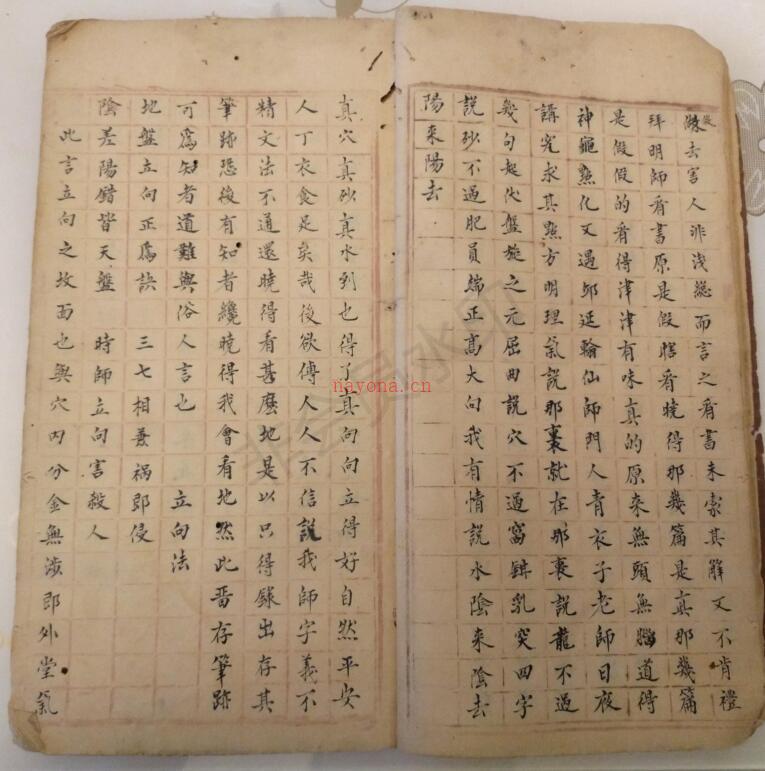 做去害人非浅總而言之看書未索其解又不肯禮
拜明師看書原是假瞎看曉得那幾篇是真那幾篇
是假假的看得津津有味真的原來無頭無腦道得
神龜點化又遇邱延翰仙師門人青衣子老師日夜
講究求其點方明理氣說那裏就在那裏說龍不過
幾句起伏盤旋之元屈曲說穴不過窩鉗乳突四字
說砂不過肥員端正高大句我有情說水陰來陰去
陽來陽去
真穴真砂真水到也得了真向向立得好自然平安
人丁衣食足矣哉後欲傳人人不信說我師字義不
精文法不通還曉得看甚麽地是以只得錄出存其
筆跡恐後有知者纔曉得我會看地然此畨存筆跡
可爲知者道難與俗人言也 立向法
地盤立向正爲訣 三七相兼禍即侵
陰差陽錯皆天盤 時師立向害殺人
此言立向之故面也與穴內分金無涉即外堂氣
nayona.cn